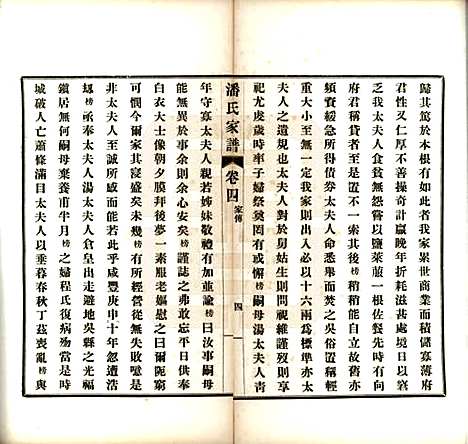 歸其篤於本根有如此者我家累世商業而積儲寡薄府
君性又仁厚不善操奇計贏晚年折耗過甚先世遺業以窘
乏我太夫人食貧無怨嘗以鹽萊菔一根佐餐先時日以
府君稱貸者至是不一索其後榜稍稍能自立故舊亦
頻賫緩急所得債券太夫人命悉舉而焚之吳俗置稱輕
重大小至無一定我家則出入必以十六兩為標準亦太
夫人之遺規也太夫人對於舅姑生則問視維謹歿則享
祀尤虔歲時率子婦祭奠罔有或懈榜嗣母湯太夫人青
潘氏家譜
卷四
家傳
四
年守寡太夫人親若姊妹敬禮有加並諭榜曰汝事嗣母
能無異於事吾則余心安矣榜謹誌之弗敢忘平日奉
白衣大士像朝夕膜拜後夢一素服老嫗慰之曰爾阨窮
可憫今爾家其寖盛矣嗣後榜所有經營從無失敗噫是
非太夫人至誠所感而能若此乎咸豐庚申十年忽遭逢
難榜亟奉太夫人湯太夫人倉皇出走避地吳縣之光福
鎮居無何嗣母棄養甫半月榜之婦程氏復病歿當是時
城破人亡蕭條滿目太夫人以垂暮春秋丁茲喪亂榜與